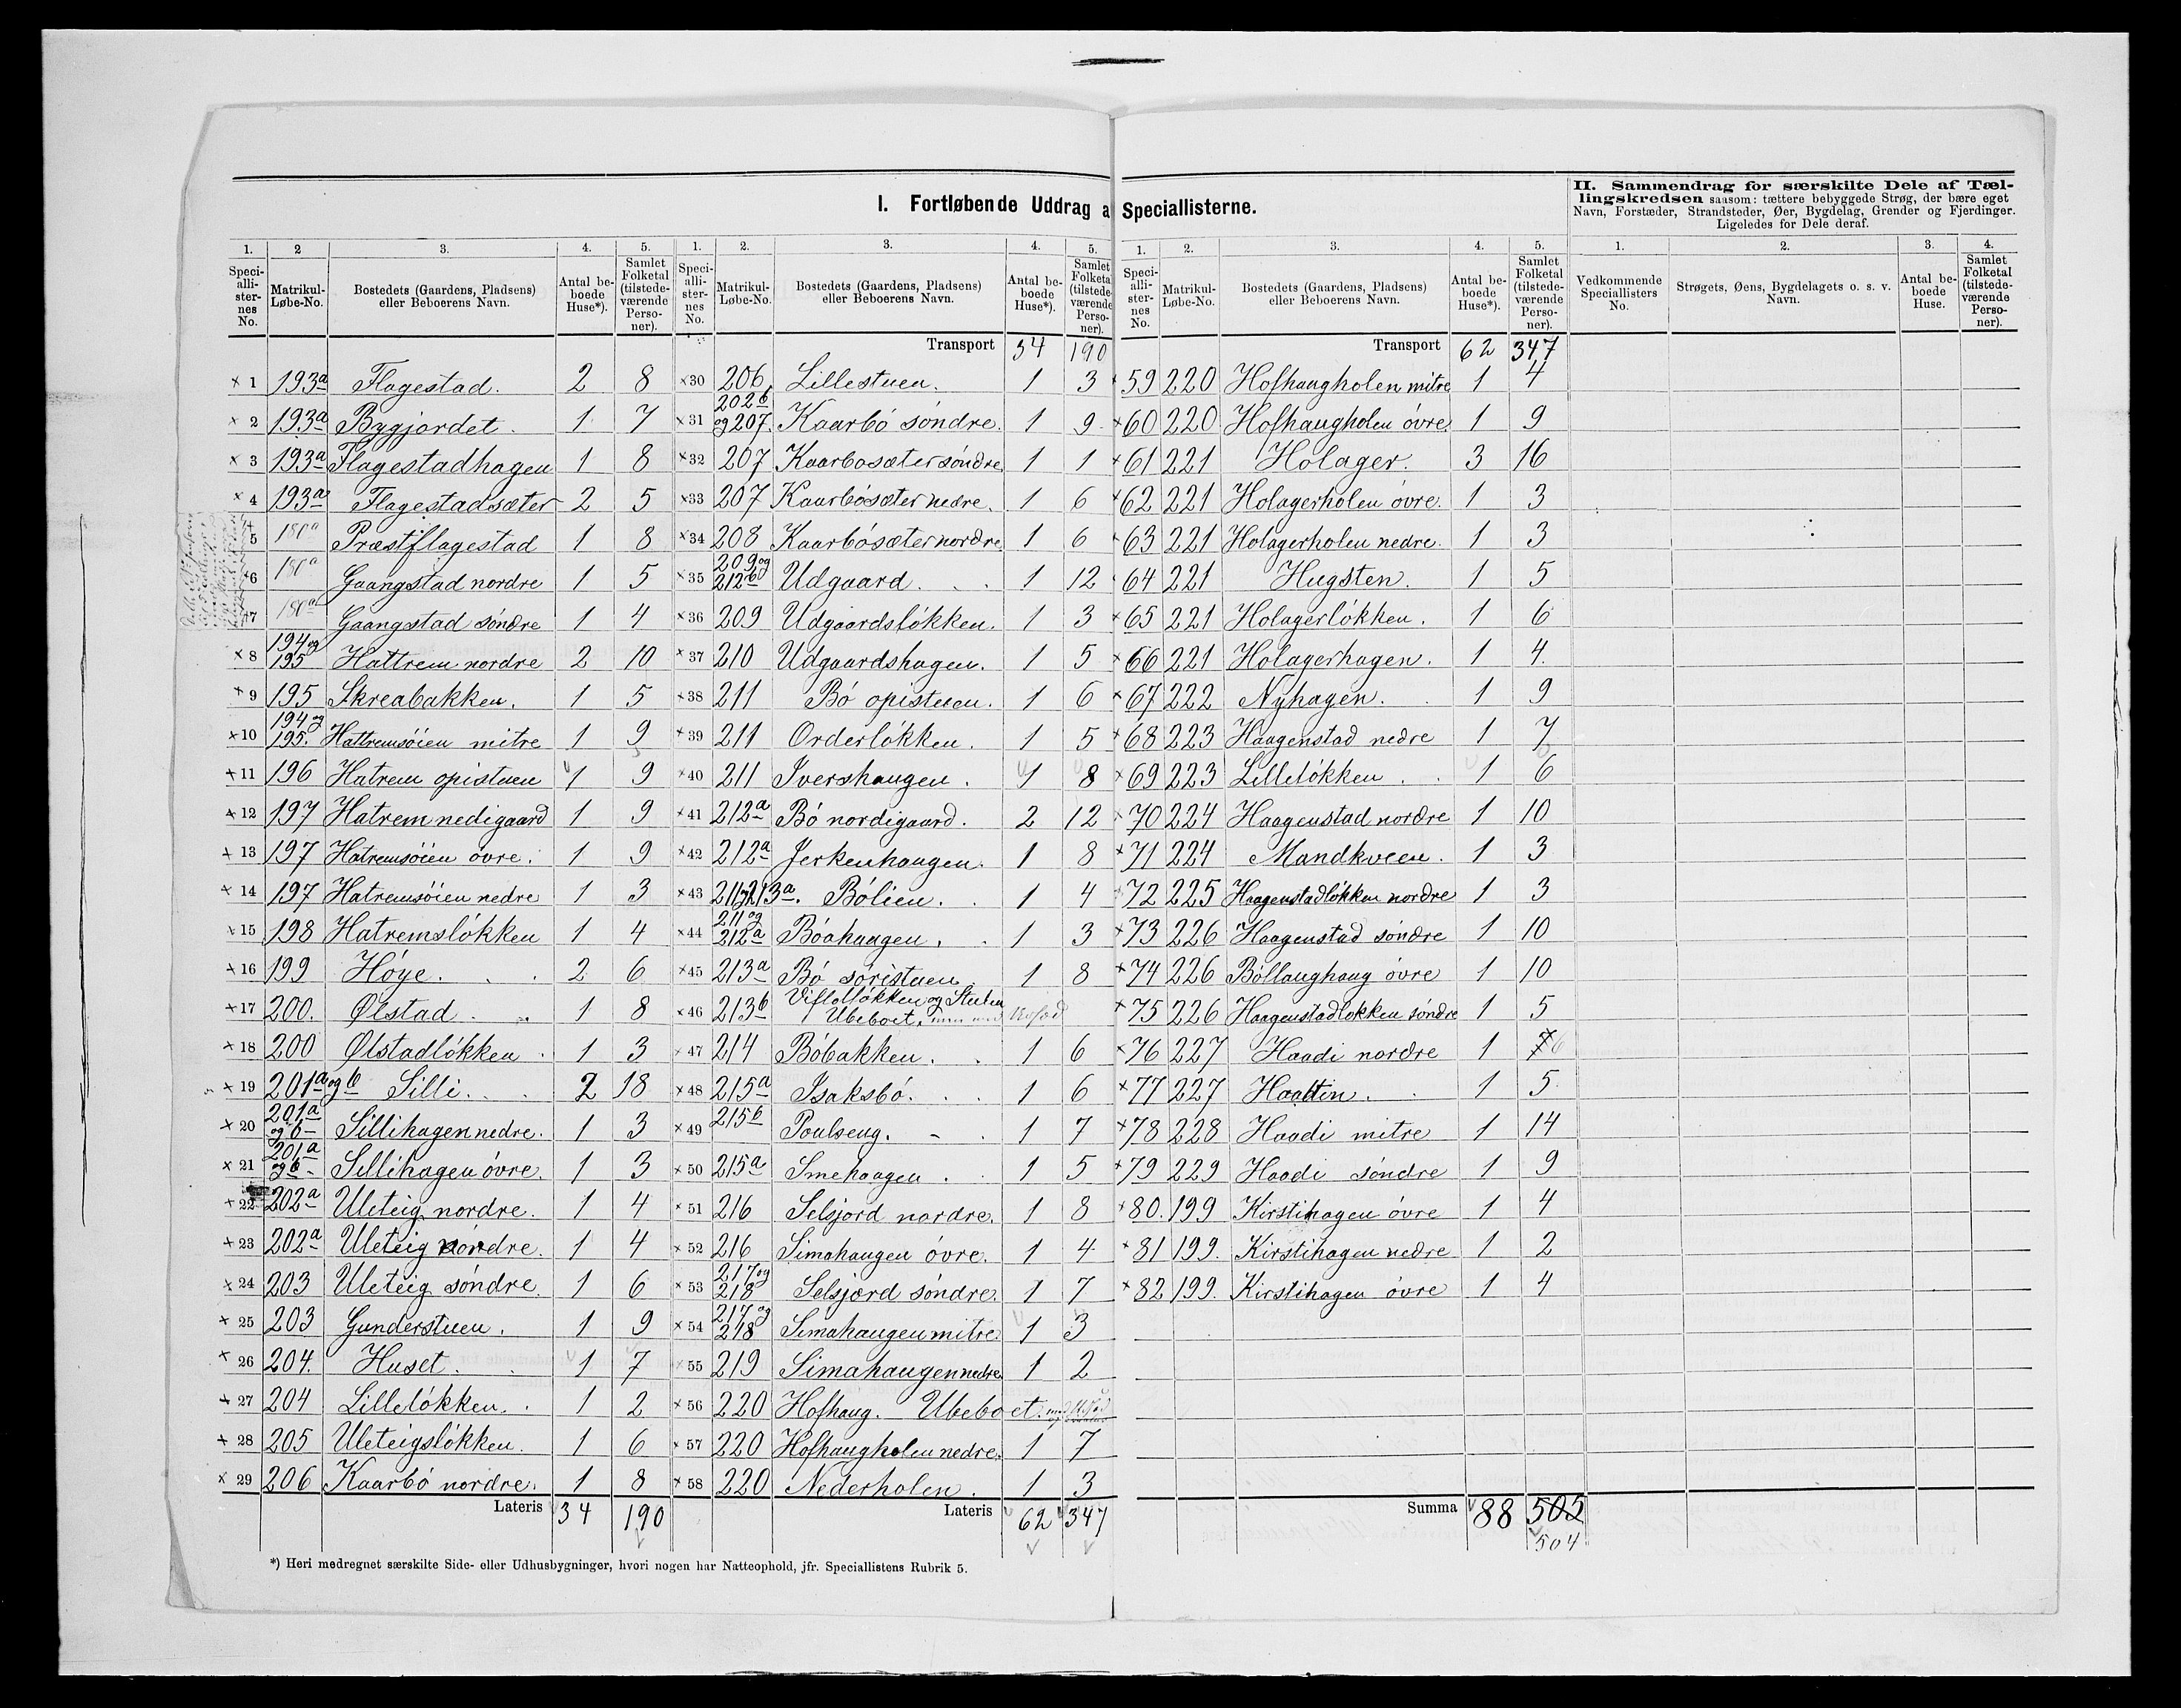 I. Fortløbende Uddrag a Speciallisterne.
II. Sammendrag for særskilte Dele af Tæl-
lingskredsen saasom: tættere bebyggede Strøg, der bære eget
Navn, Forstæder, Strandsteder, Øer, Bygdelag, Grender og Fjerdinger.
Ligeledes for Dele deraf.
1. 2 3. 4. 5.
Speci-alli-ster-nes No. Matrikul-Løbe-No. Bostedets (Gaardens, Pladsens) eller Beboerens Navn. Antal be-boede Huse*). Samlet Folketal (tilstede-værende Perso-ner).
× 1 193a Flagestad. 2 8
× 2 193a Bygjordet. 1 7
× 3 193a Flagestadhagen 1 8
× 4 193a Flagestadsæter 2 5
5 180a Præstflagestad 1 8
×6 180a Gaangstad nordre 1 5
×7 180a Gaangstad söndre 1 4
× 8 194 og 195 Hattrem nordre 2 10
× 9 195 Skreabakken. 1 5
×10 194 og 195. Hattremsöien mitre 1 9
×11 196 Hatrem opistuen 1 9
×12 197 Hatrem nedigaard 1 9
× 13 197 Hatremsöien övre. 1 9
× 14 197 Hatremsöien nedre 1 3
×15 198 Hatremslökken 1 4
×16 199 Höye. 2 6
×17 200. Ølstad. 1 8
×18 200 Ølstadlökken 1 3
× 19 201a og b Silli. 2 18
× 20 201a og b Sillihagen nedre. 1 3
× 21 201a og b Sillihagen övre. 1 3
×22 202a Uleteig nordre. 1 4
×23 202a Uleteig nordre. 1 4
×24 203 Uleteig söndre. 1 6
× 25 203 Gunderstuen. 1 9
× 26 204. Huset. 1 7
×27 204 Lillelökken. 1 2
× 28 205 Uleteigslökken. 1 6
× 29 206 Kaarbö nordre. 1 8
Lateris 34 190
1. 2. 3. 4. 5.
Speci-alli-ster-nes No. Matrikul-Løbe-No. Bostedets (Gaardens, Pladsens) eller Beboerens Navn. Antal be-boede Huse*). Samlet Folketal (tilstede-værende Perso-ner).
Transport 34 190
×30 206 Lillestuen. 1 3
×31 202b og 207. Kaarbö söndre. 1 9
×32 207 Kaarbosæter söndre. 1 1
×33 207 Kaarbösæter nedre. 1 6
×34 208 Kaarbösæter nordre. 1 6
×35 209 og 212b Udgaard. 1 12
×36 209 Udgaardslökken. 1 3
×37 210 Udgaardshagen. 1 5
×38 211 Bö opistuen. 1 6
×39 211 Orderlökken. 1 5
×40 211 Ivershaugen. 1 8
×41 212a Bö nordigaard. 2 12
×42 212a Jerkenhaugen. 1 8
×43 211 og 213a. Bölien. 1 4
×44 211 og 212a Böahaugen. 1 3
×45 213a Bö söristuen 1 8
×46 213b Ubeboet.
×47 214 Böbakken. 1 6
×48 215a Isaksbö. 1 6
×49 215b Poulseng. 1 7
×50 215a Smehaugen 1 5
×51 216 Selsjord nordre. 1 8
×52 216 Simahaugen övre. 1 4
×53 217 og 218 Selsjord söndre. 1 7
×54 217 og 218 Simahaugen mitre. 1 3
×55 219 Simahaugen nedre 1 2
×56 220 Hofhaug. Ubeboet.
×57 220 Hofhaugholen nedre. 1 7
×58 220 Nederholen. 1 3
Lateris 62 347
1. 2. 3. 4. 5.
Speci-alli-ster-nes No. Matrikul-Løbe-No. Bostedets (Gaardens, Pladsens) eller Beboerens Navn. Antal be-boede Huse*). Samlet Folketal (tilstede-værende Perso-ner).
Transport 62 347
59 220 Hofhaugholen mitre 1 4
×60 220 Hofhaugholen övre. 1 9
×61 221 Holager. 3 16
×62 221 Holagerholen övre. 1 3
×63 221 Holagerholen nedre. 1 3
64 221 Hugsten. 1 5
×65 221 Holagerlökken. 1 6
×66 221 Holagerhagen. 1 4.
×67 222 Nyhagen. 1 9
×68 223 Haagenstad nedre 1 7
×69 223 Lillelökken. 1 6
×70 224 Haagenstad nordre 1 10
×71 224 Mandkveen. 1 3
×72 225 Haagenstadlökken nordre 1 3
×73 226 Haagenstad söndre 1 10
×74 226 Böllaughaug övre 1 10
×75 226 Haagenstadlokken söndre 1 5
×76 227 Haadi nordre 1 7 6
×77 227 Haattin. 1 5.
×78 228 Haadi mitre 1 14
×79 229 Haadi söndre 1 9
×80. 199 Kirstihagen övre 1 4
×81 199. Kirstihagen nedre 1 2
×82 199. Kirstihagen övre 1 4
Summa 88 505
504
1. 2. 3. 4.
Vedkommende Speciallisters No. Strøgets, Øens, Bygdelagets o. s. v. Navn. Antal be-boede Huse. Samlet Folketal (tilstede-værende Perso-ner).
*) Heri medregnet særskilte Side- eller Udhusbygninger, hvori nogen har Natteophold, jfr. Speciallistens Rubrik 5.